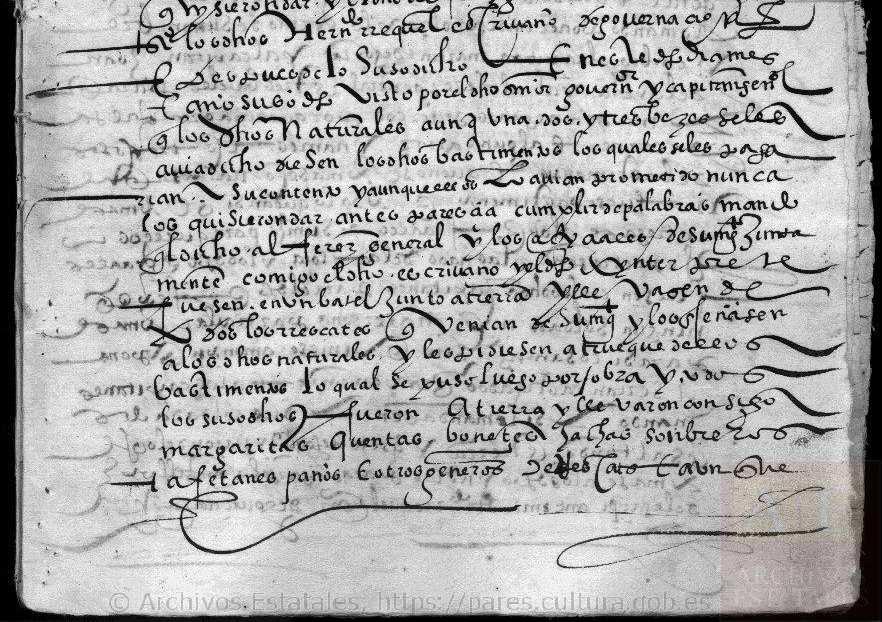 los dhos Hernrriquel escrivano de governacion
E despues de lo susodicho En este dho dia mes
E año susodho visto por el dho señor governor y capitan general
q los dhos naturales aunq una dos y tres bezes se les
avia dicho diesen los dhos bastimentos los quales se les paga
rian a su contento y aunque ellos lo avian prometido nunca
los quisieron dar antes paresçia cumplir de palabras mando
q el dicho alferez general y los ofiçiales de su mag
mente comigo el dho escrivano y el dho ynterprete
fuesen en un batel junto a tierra y llevasen de
todos los rrescates q venian de su mag y los enseñasen
a los dhos naturales y les pidiesen a trueque dellos
bastimentos lo qual se puso luego por obra y todos
los susodhos fueron a tierra y llevaron consigo
margaritas quentas bonetes hachas sonbreros
tafetanes paños E otros generos de rrescate E aunque
© Archivos Estatales, https://pares.cultura.gob.es
ARCHIVOS
ESTATALES